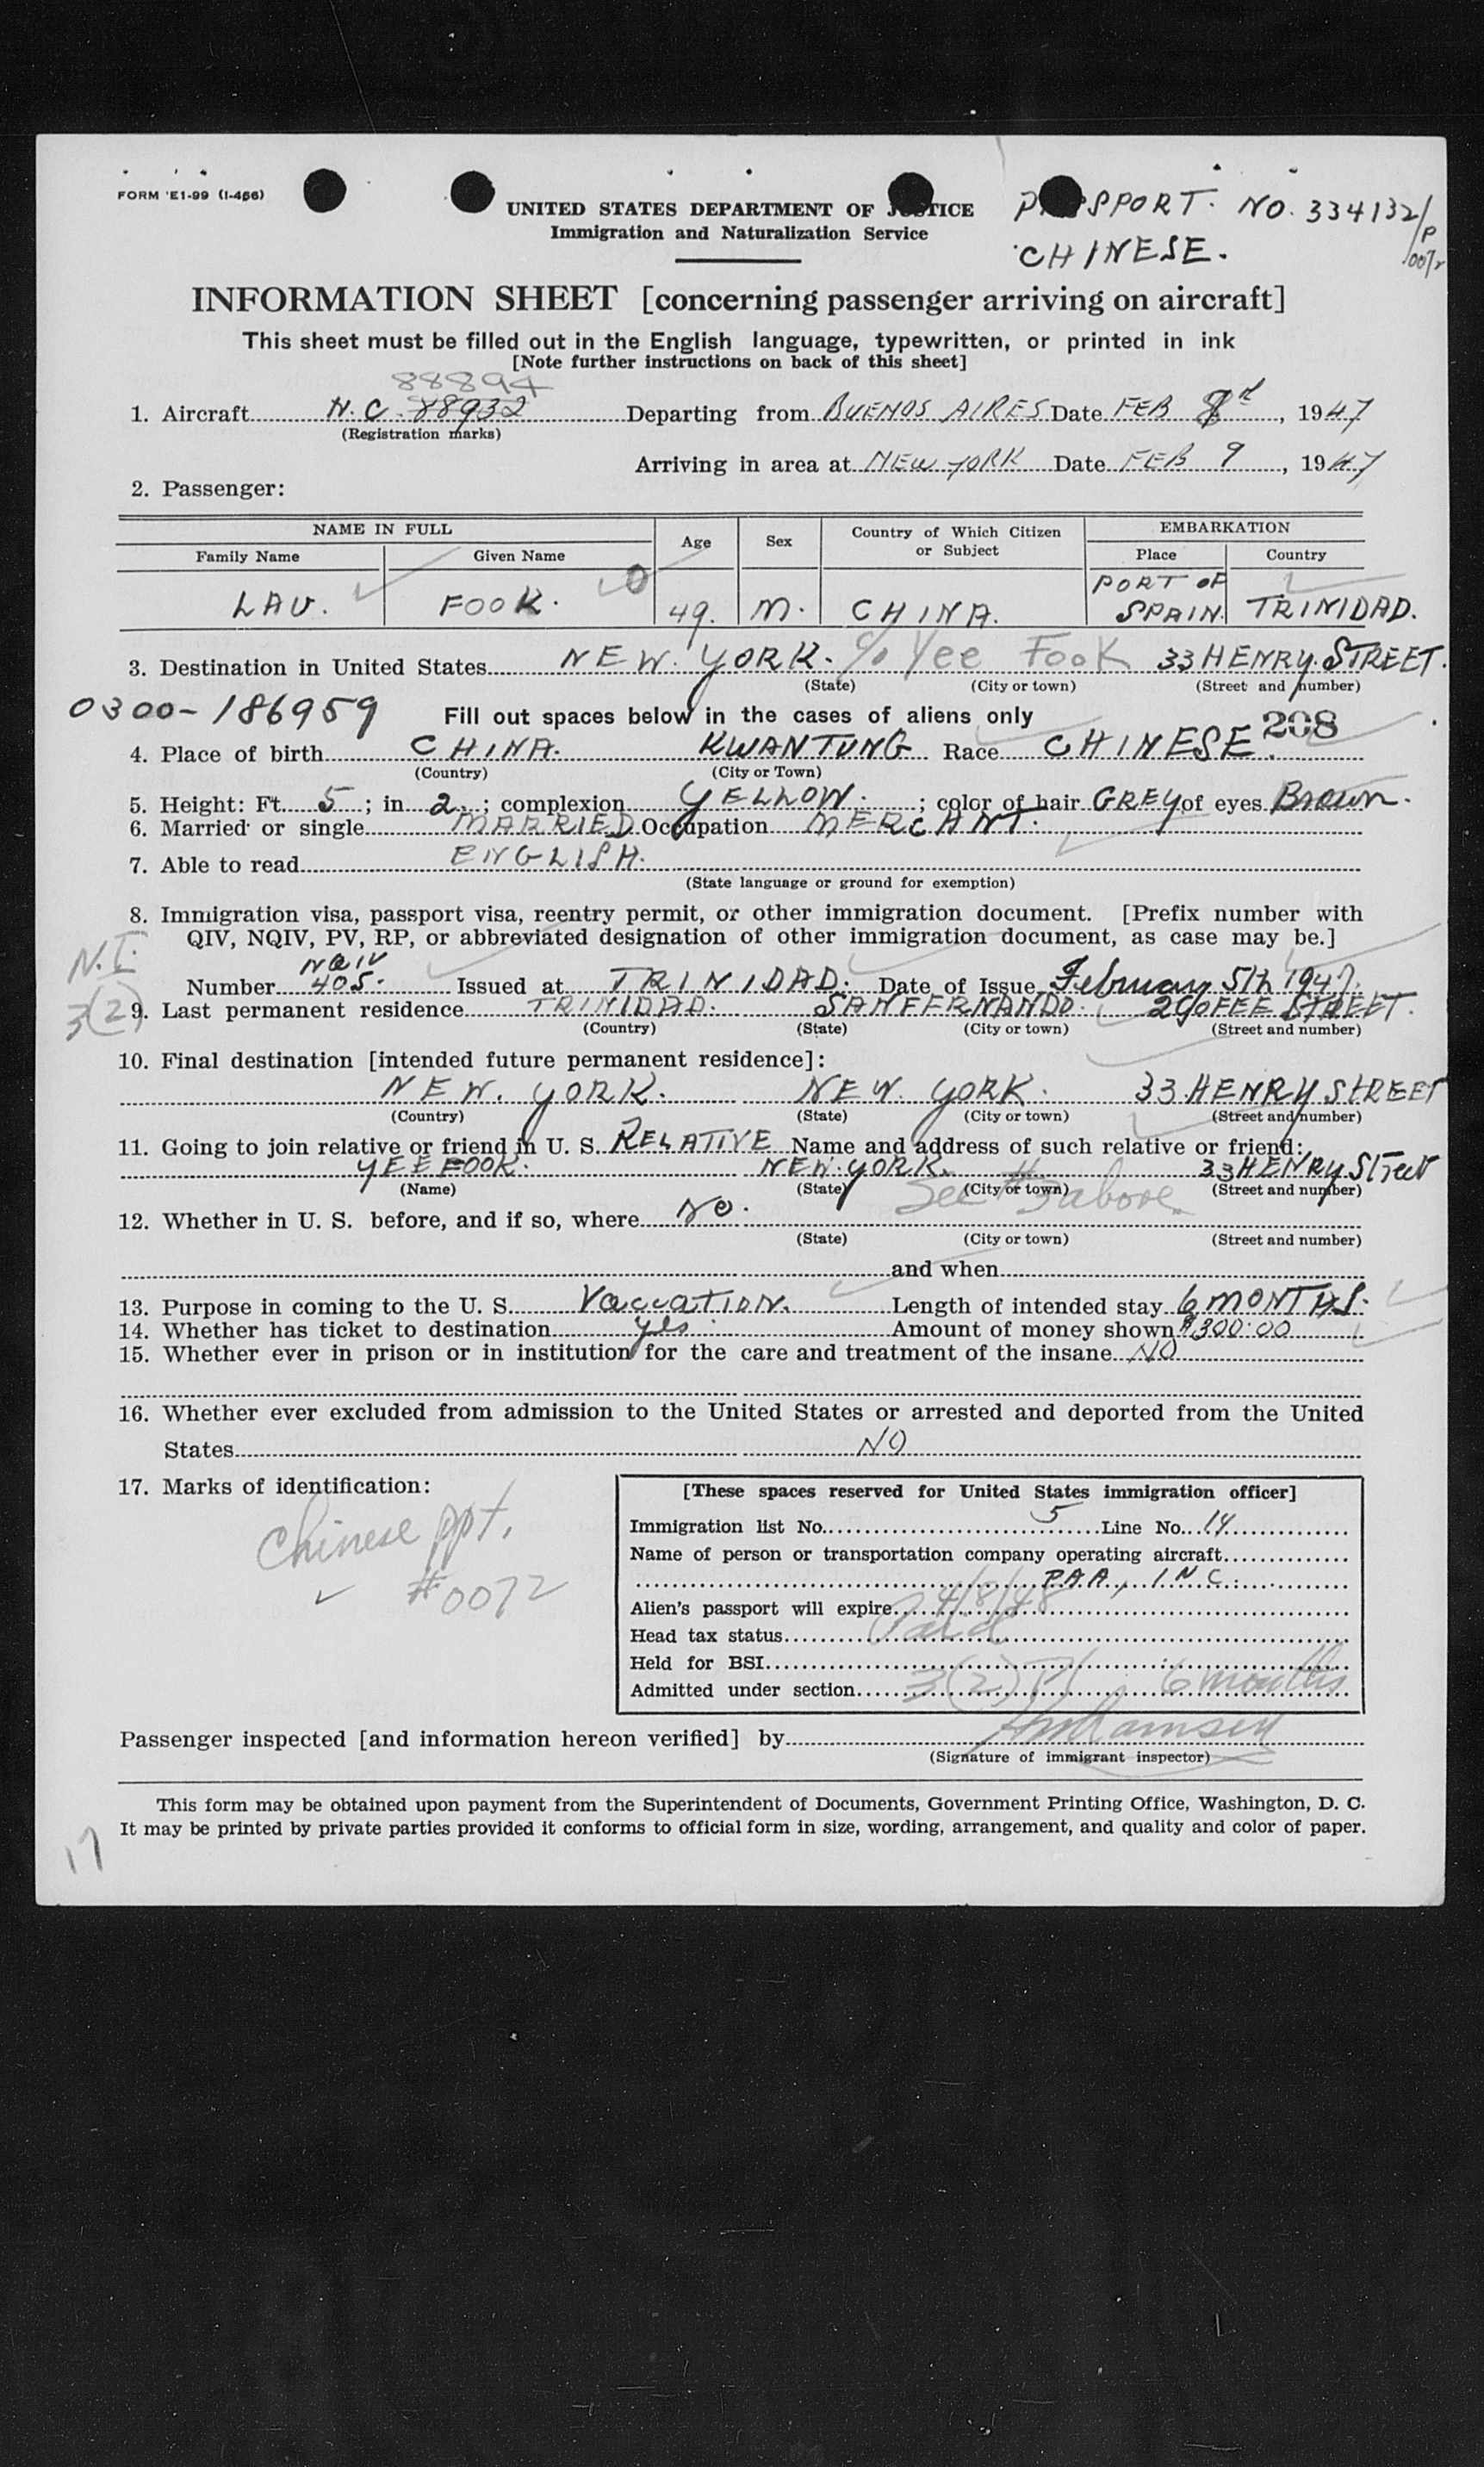 FORM E1-99 (I-466)
UNITED STATES DEPARTMENT OF JUSTICE
Immigration and Naturalization Service
PASSPORT. NO. 334132/P
CHINESE.
INFORMATION SHEET [concerning passenger arriving on aircraft]
This sheet must be filled out in the English language, typewritten, or printed in ink
[Note further instructions on back of this sheet]
88894
1. Aircraft N.C. 88932 Departing from BUENOS AIRES Date FEB , 1947
(Registration marks)
Arriving in area at NEW YORK Date FEB 9, 1947
2. Passenger:
NAME IN FULL Age Sex Country of Which Citizen or Subject EMBARKATION
Family Name Given Name Place Country
LAU. FOOK. 49. M. CHINA. PORT OF SPAIN. TRINIDAD.
3. Destination in United States NEW YORK. c/o Yee Fook 33 HENRY STREET.
(State) (City or town) (Street and number)
0300-186959 Fill out spaces below in the cases of aliens only 208
4. Place of birth CHINA. KWANTUNG Race CHINESE.
(Country) (City or Town)
5. Height: Ft. 5; in 2.; complexion YELLOW.; color of hair GREY of eyes Brown.
6. Married or single MARRIED Occupation MERCHANT.
7. Able to read ENGLISH.
(State language or ground for exemption)
8. Immigration visa, passport visa, reentry permit, or other immigration document. [Prefix number with
QIV, NQIV, PV, RP, or abbreviated designation of other immigration document, as case may be.]
N.I. NQIV
Number 405. Issued at TRINIDAD. Date of Issue February 5th 1947.
3(2) 9. Last permanent residence TRINIDAD. SAN FERNANDO. COFFEE STREET.
(Country) (State) (City or town) (Street and number)
10. Final destination [intended future permanent residence]:
NEW. YORK. NEW YORK. 33 HENRY STREET
(Country) (State) (City or town) (Street and number)
11. Going to join relative or friend in U. S. RELATIVE Name and address of such relative or friend:
YEE FOOK. NEW YORK. 33 HENRY Street
(Name) (State) (City or town) (Street and number)
See #3 above
12. Whether in U. S. before, and if so, where No.
(State) (City or town) (Street and number)
and when
13. Purpose in coming to the U. S. Vaccation. Length of intended stay 6 MONTHS.
14. Whether has ticket to destination yes Amount of money shown $300.00
15. Whether ever in prison or in institution for the care and treatment of the insane NO
16. Whether ever excluded from admission to the United States or arrested and deported from the United
States NO
17. Marks of identification:
Chinese ppt.
#0072
[These spaces reserved for United States immigration officer]
Immigration list No. 5 Line No. 14
Name of person or transportation company operating aircraft
PAA, INC.
Alien's passport will expire 4/8/48
Head tax status Paid
Held for BSI
Admitted under section 3(2) 6 months
Passenger inspected [and information hereon verified] by
(Signature of immigrant inspector)
This form may be obtained upon payment from the Superintendent of Documents, Government Printing Office, Washington, D. C.
It may be printed by private parties provided it conforms to official form in size, wording, arrangement, and quality and color of paper.
17